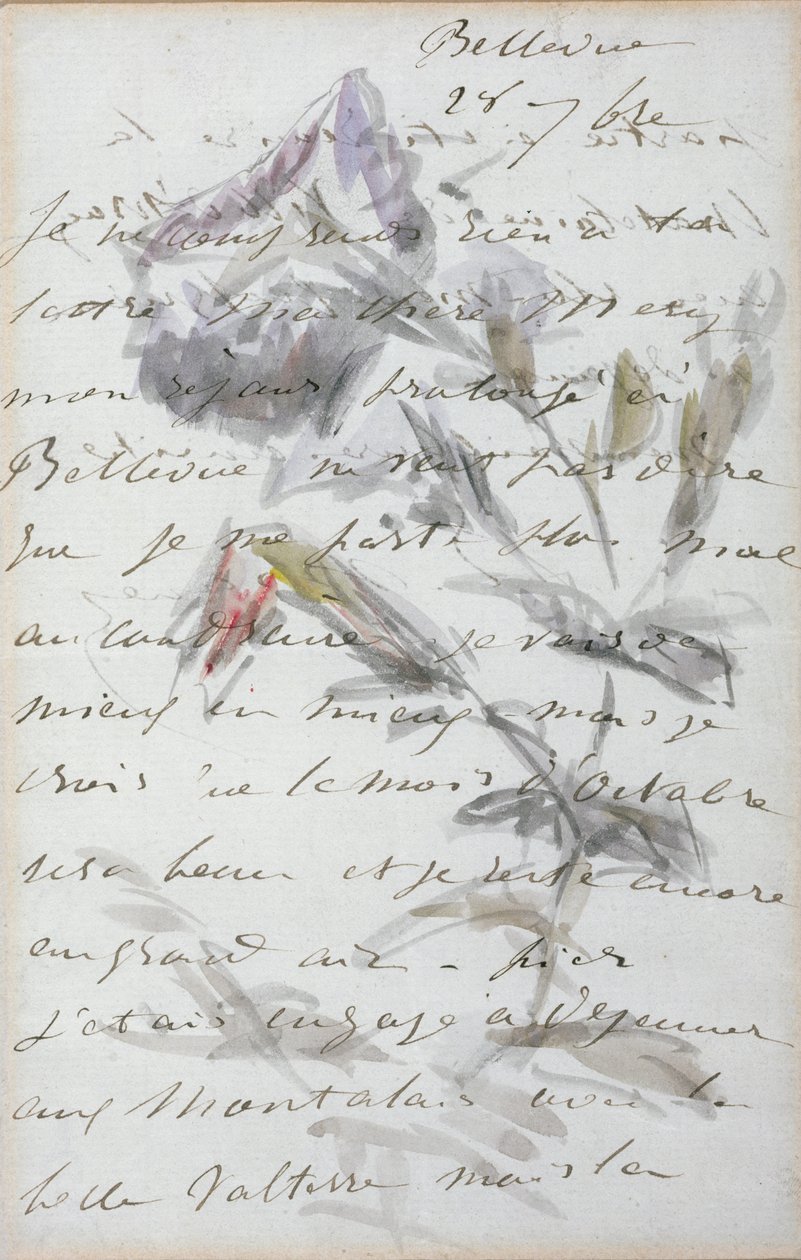 Bellevue
28 7bre
Je ne comprends rien à ta
lettre ma chère Mery
mon séjour prolongé ici à
Bellevue ne veut pas dire
que je me porte plus mal
au contraire je vais de
mieux en mieux - mais je
crois que le mois d'Octobre
sera beau et je reste encore
au grand air - hier
j'étais engagé à déjeuner
aux Montalais avec la
belle Valtesse mais la